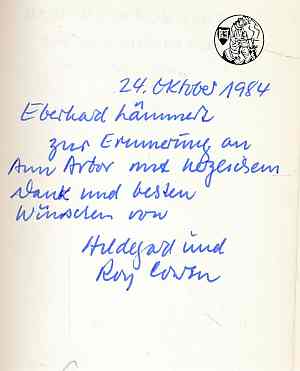 24. Oktober 1984
Eberhard Lämmert
zur Erinnerung an
Ann Arbor mit herzlichem
Dank und besten
Wünschen von
Hildegard und
Roy Cowen